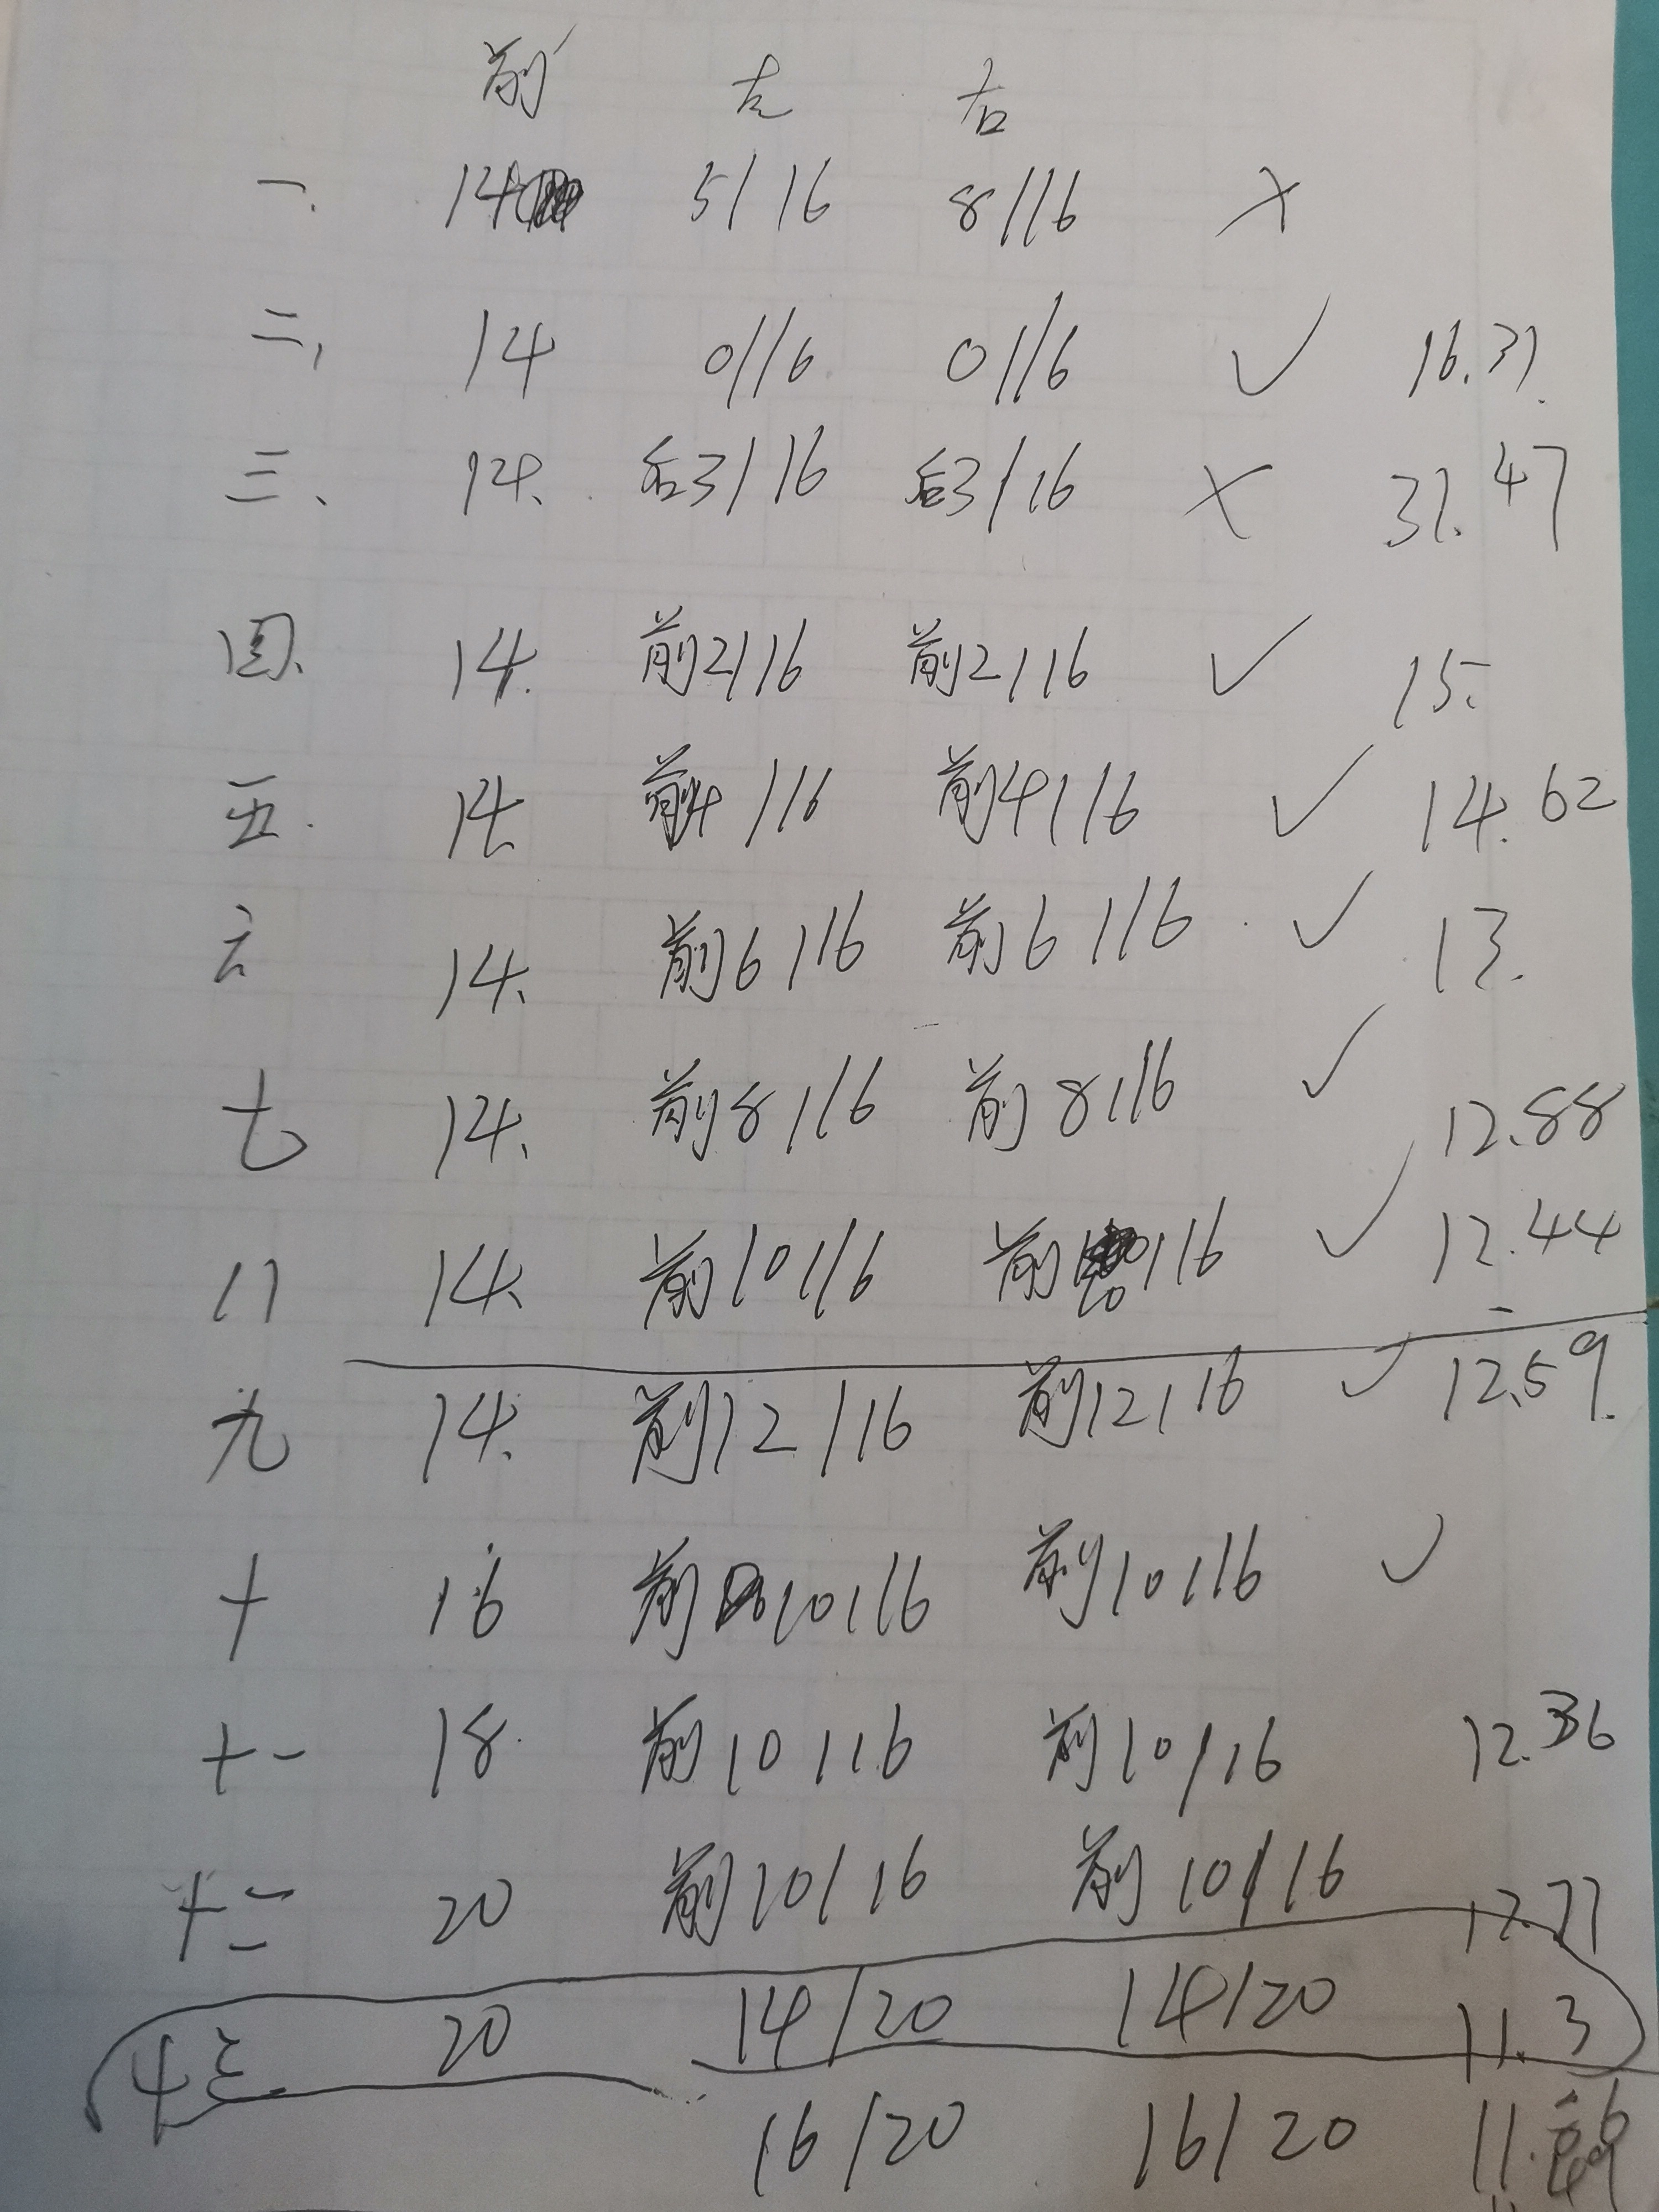 前 左 右
一. 14 5/16 8/16 ×
二, 14 0/16 0/16 ✓ 16.31.
三、 14. 后3/16 后3/16 × 31.47
四. 14. 前2/16 前2/16 ✓ 15.
五. 14. 前4/16 前4/16 ✓ 14.62
六 14. 前6/16 前6/16 ✓ 13.
七 14. 前8/16 前8/16 ✓ 12.88
八 14. 前10/16 前10/16 ✓ 12.44
九 14. 前12/16 前12/16 ✓ 12.59.
十 16 前10/16 前10/16 ✓
十一 18. 前10/16 前10/16 12.36
十二 20 前10/16 前10/16 12.77
十三 20 14/20 14/20 11.3
16/20 16/20